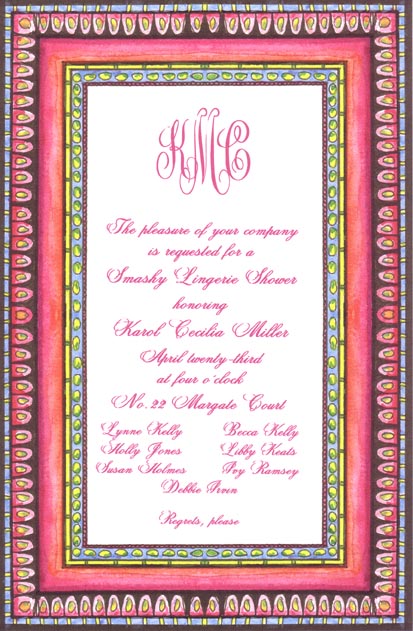 KMC
The pleasure of your company
is requested for a
Smashy Lingerie Shower
honoring
Karol Cecilia Miller
April twenty-third
at four o'clock
No. 22 Margate Court
Lynne Kelly Becca Kelly
Holly Jones Libby Keats
Susan Holmes Ivy Ramsey
Debbie Irvin
Regrets, please